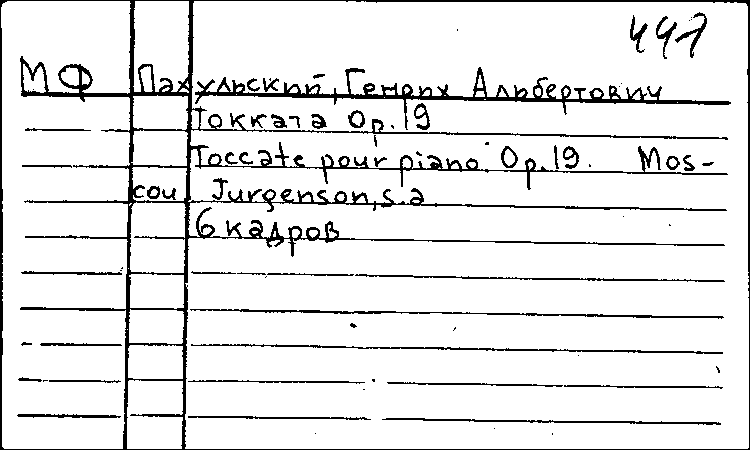 447
МФ Пахульский, Генрих Альбертович
Токката Op. 19
Toccate pour piano. Op. 19. Mos-
cou Jurgenson, s.a
6 кадров